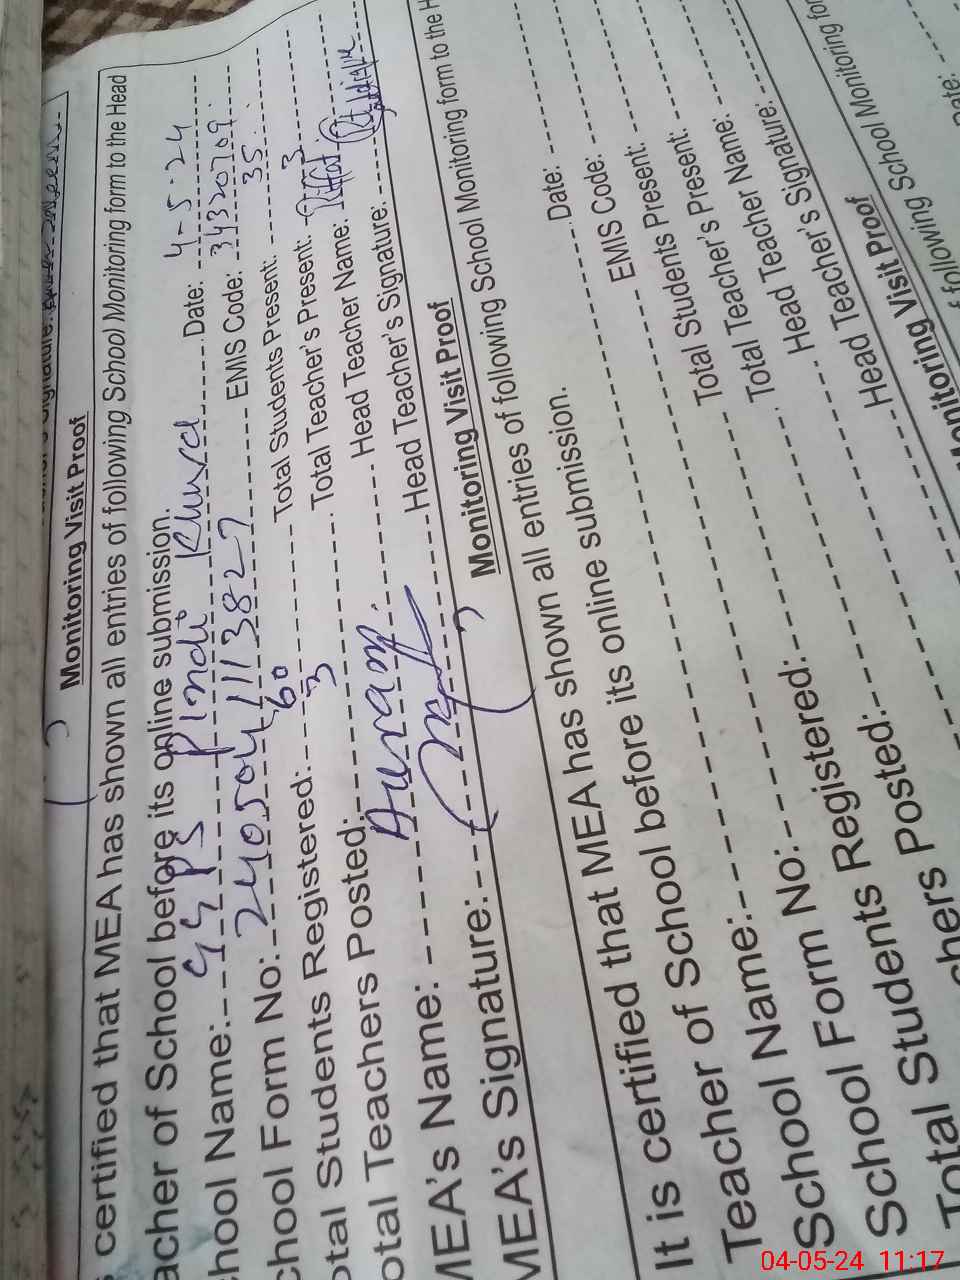 Monitoring Visit Proof
certified that MEA has shown all entries of following School Monitoring form to the Head
acher of School before its online submission.
hool Name:- GGPS Pindi Khurd Date: 4-5-24
chool Form No:- 2405041113827 EMIS Code: 34320709
otal Students Registered: 60 Total Students Present: 35
otal Teachers Posted: 3 Total Teacher's Present: 3
MEA's Name: Aurang Head Teacher Name: Riffat
MEA's Signature: Head Teacher's Signature:
Monitoring Visit Proof
It is certified that MEA has shown all entries of following School Monitoring form to the H
Teacher of School before its online submission.
School Name:- Date:
School Form No:- EMIS Code:
School Students Registered:- Total Students Present:
Total Students Posted:- Total Teacher's Present:
chers Posted:- Total Teacher Name:
Head Teacher's Signature:
Head Teacher's Signature:
Monitoring Visit Proof
following School Monitoring for
Date:
04-05-24 11:17